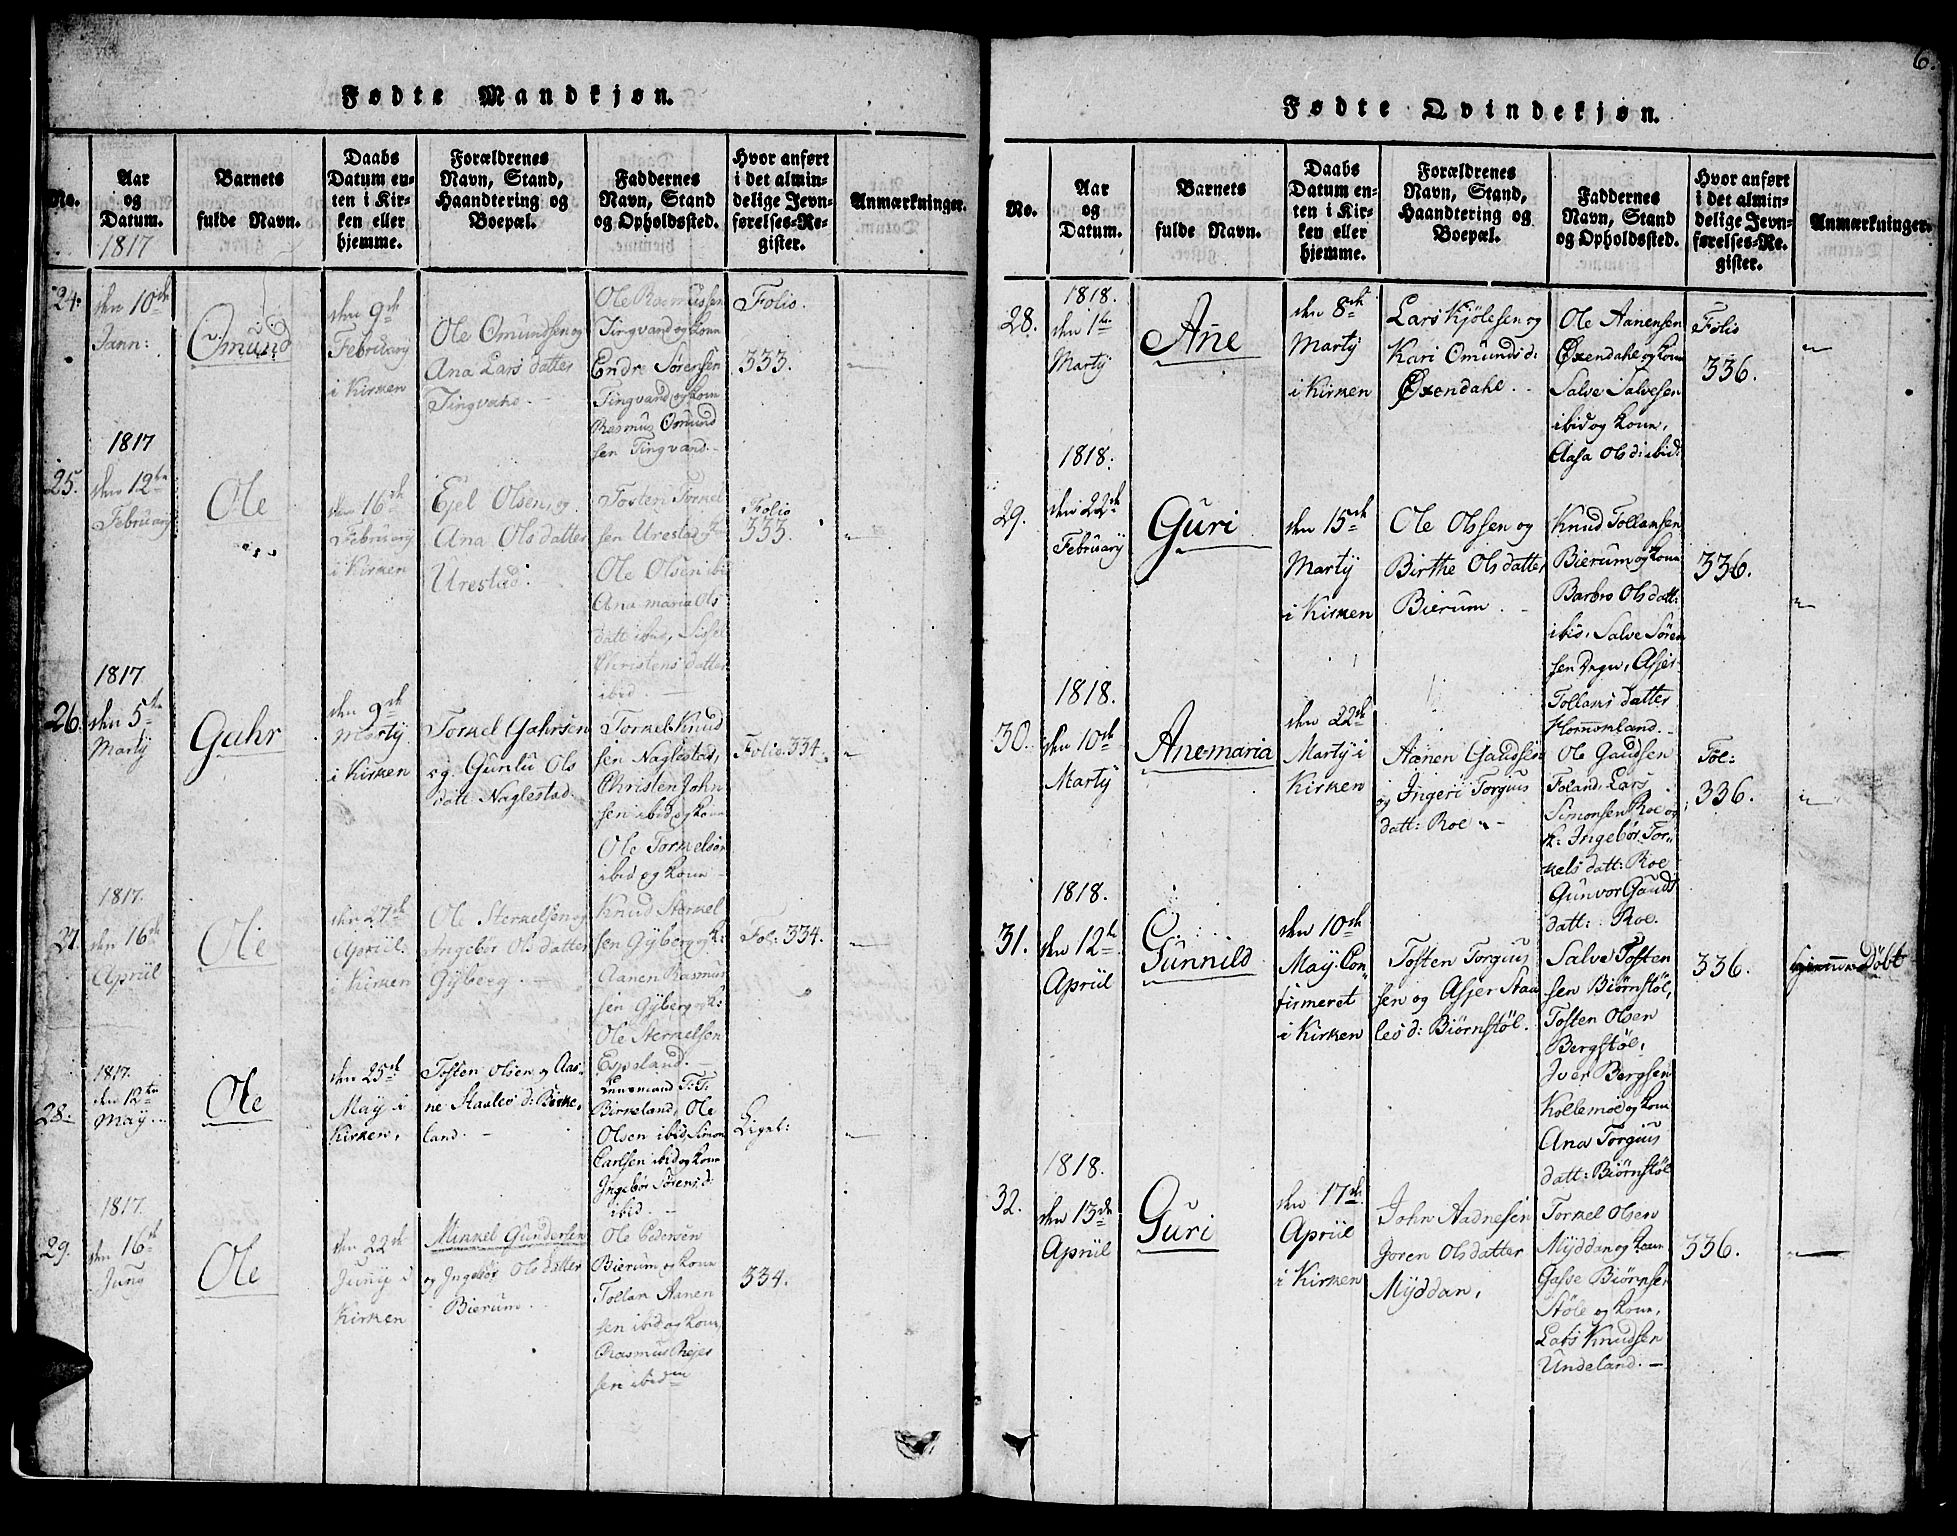 Fødte Mandkjøn.
No.
Aar
og
Datum.
1817
Barnets
fulde Navn.
Daabs
Datum en-
ten i Kir-
ken eller
hjemme.
Forældrenes
Navn, Stand,
Haandtering og
Boepæl.
Faddernes
Navn, Stand
og Opholdssted.
Hvor anført
i det almin-
delige Jevn-
førelses-Re-
gister.
Anmærkninger.
24.
den 10de
Jann:
Omund
den 9de
February
i Kirken
Ole Omundsen og
Ana Lars datter
Tingvand.
Ole Rasmussen
Tingvand og kone
Endre Sørensen
Tingvand og kone
Rasmus Omund
sen Tingvand.
Folio.
333.
1817
25.
den 12te
February
Ole
den 16de
February
i Kirken
Ejel Olsen og
Ana Olsdatter
Urestad.
Tosten Torkel
sen Urestad
Ole Olsen ibid
Ana maria Ols
datt ibid, Sisse
Christens datter
ibid.
Folio
333.
1817
26.
den 5te
Martÿ
Gahr
den 9de
Martÿ
i Kirken
Torkel Gahrsen
og Gunlu Ols
datt Naglestad.
Torkel Knud
sen Naglestad,
Christen John
sen ibid og kone
Ole Torkelsen
ibid og kone
Folio 334.
1817.
27.
den 16de
Apriil
Ole
den 27de
Apriil.
i Kirken
Ole Sterkelsen og
Ingebør Olsdatter
Gÿberg.
Knud Sterkel
sen Gÿberg og k:
Aanen Rasmus
sen Gÿberg og k:
Ole Sterkelsen
Espeland.
Fol: 334.
1817.
28.
den 12te
Maÿ
Ole
den 25de
Maÿ i
Kirken,
Tosten Olsen og Aas-
ne Staales d: Birke-
land.
Lensmand T: T:
Birkeland, Ole
Olsen ibid, Simon
Carlsen ibid og kone
Ingebør Sørens d:
ibid.
Ligel:
1817.
29.
den 16de
Junÿ
Ole
den 22de
Junÿ i
Kirken
Mikkel Gundersen
og Ingebør Olsdatter
Bierum.
Ole Pedersen
Bierum og kone
Tollan Aanen
sen ibid og kone,
Rasmus Rejer
sen ibid
334.
6.
Fødte Qvindekjøn.
No.
Aar
og
Datum.
Barnets
fulde Navn.
Daabs
Datum en-
ten i Kir-
ken eller
hjemme.
Forældrenes
Navn, Stand,
Haandtering og
Boepæl.
Faddernes
Navn, Stand
og Opholdssted.
Hvor anført
i det almin-
delige Jevn-
førelses-Re-
gister.
Anmærkninger.
28.
1818.
den 1te
Martÿ
Ane
den 8de
Martÿ
i Kirken
Lars Kjølesen og
Kari Omunds d:
Øxendahl.
Ole Aanensen
Øxendahl og kone
Salve Salvesen
ibid og kone,
Aasa Ols d: ibid:
Folio
336.
1818.
29.
den 22de
Februarÿ
Guri
den 15de
Martÿ
i Kirken
Ole Olssen og
Birthe Olsdatter
Bierum.
Knud Tollamsen
Bierum og kone
Barbro Olsdatt:
ibid, Salve Søren
sen Degn, Assier
Tollams datter
Hommeland.
336.
1818.
30.
den 10de
Martÿ
Anemaria
den 22de
Martÿ i
Kirken
Aanen Gaudsen
og Ingeri Torgius
datt: Roe
Ole Gaudsen
Foland, Lars
Simonsen Roe og
k: Ingebør Tor-
kels datt: Roe
Gunvor Gauds
datt: Roe.
Fol:
336.
1818.
31.
den 12te
Apriil
Gunnild
den 10de
Maÿ Con
firmeret
i Kirken
Tosten Torgius
sen og Assier Staa
les d: Biørnstøl.
Salve Tosten
sen Biørnstøl,
Tosten Olsen
Bergstøl,
Iver Bergsen
Kollemoe og kone
Ana Torgius
datt: Biørnstøl
336.
Hjemme Døbt
1818.
32.
den 13de
Apriil
Guri
den 17de
Apriil
i Kirken
John Aadnesen
Joren Olsdatter
Mÿddan,
Torkel Olsen
Mÿddan og kone
Gasse Biørnsen
Støle og kone,
Lars Knudsen
Undeland.
336.